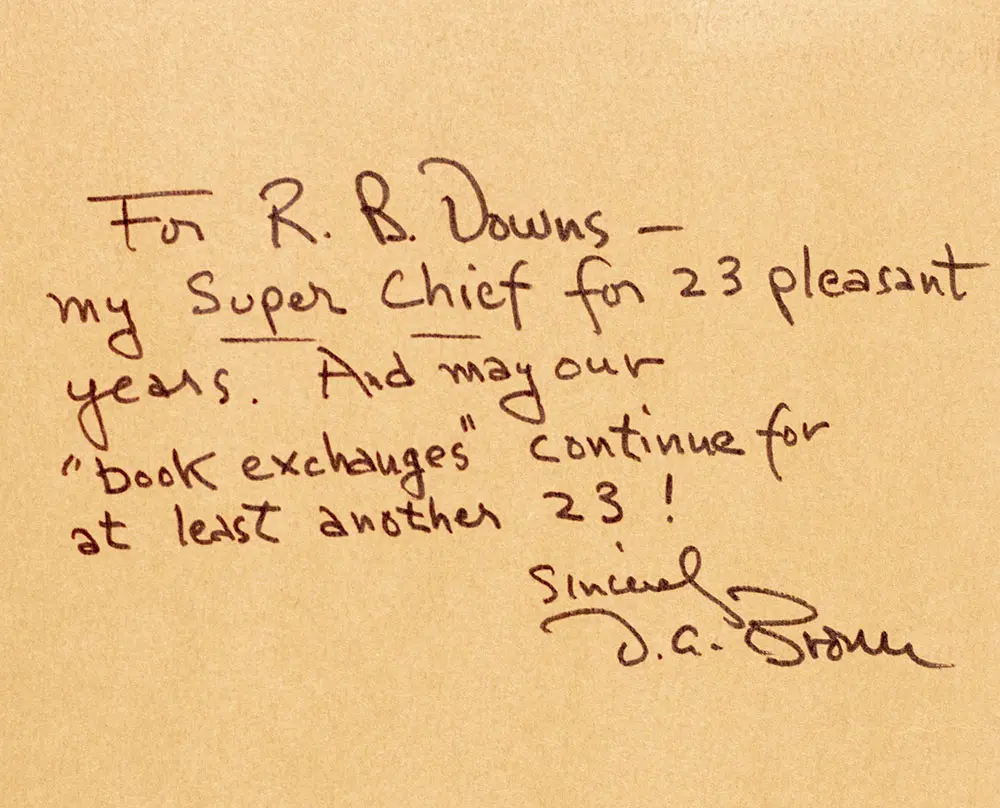 For R. B. Downs —
my Super Chief for 23 pleasant
years. And may our
"book exchanges" continue for
at least another 23!
Sincerely
D. A. Brown